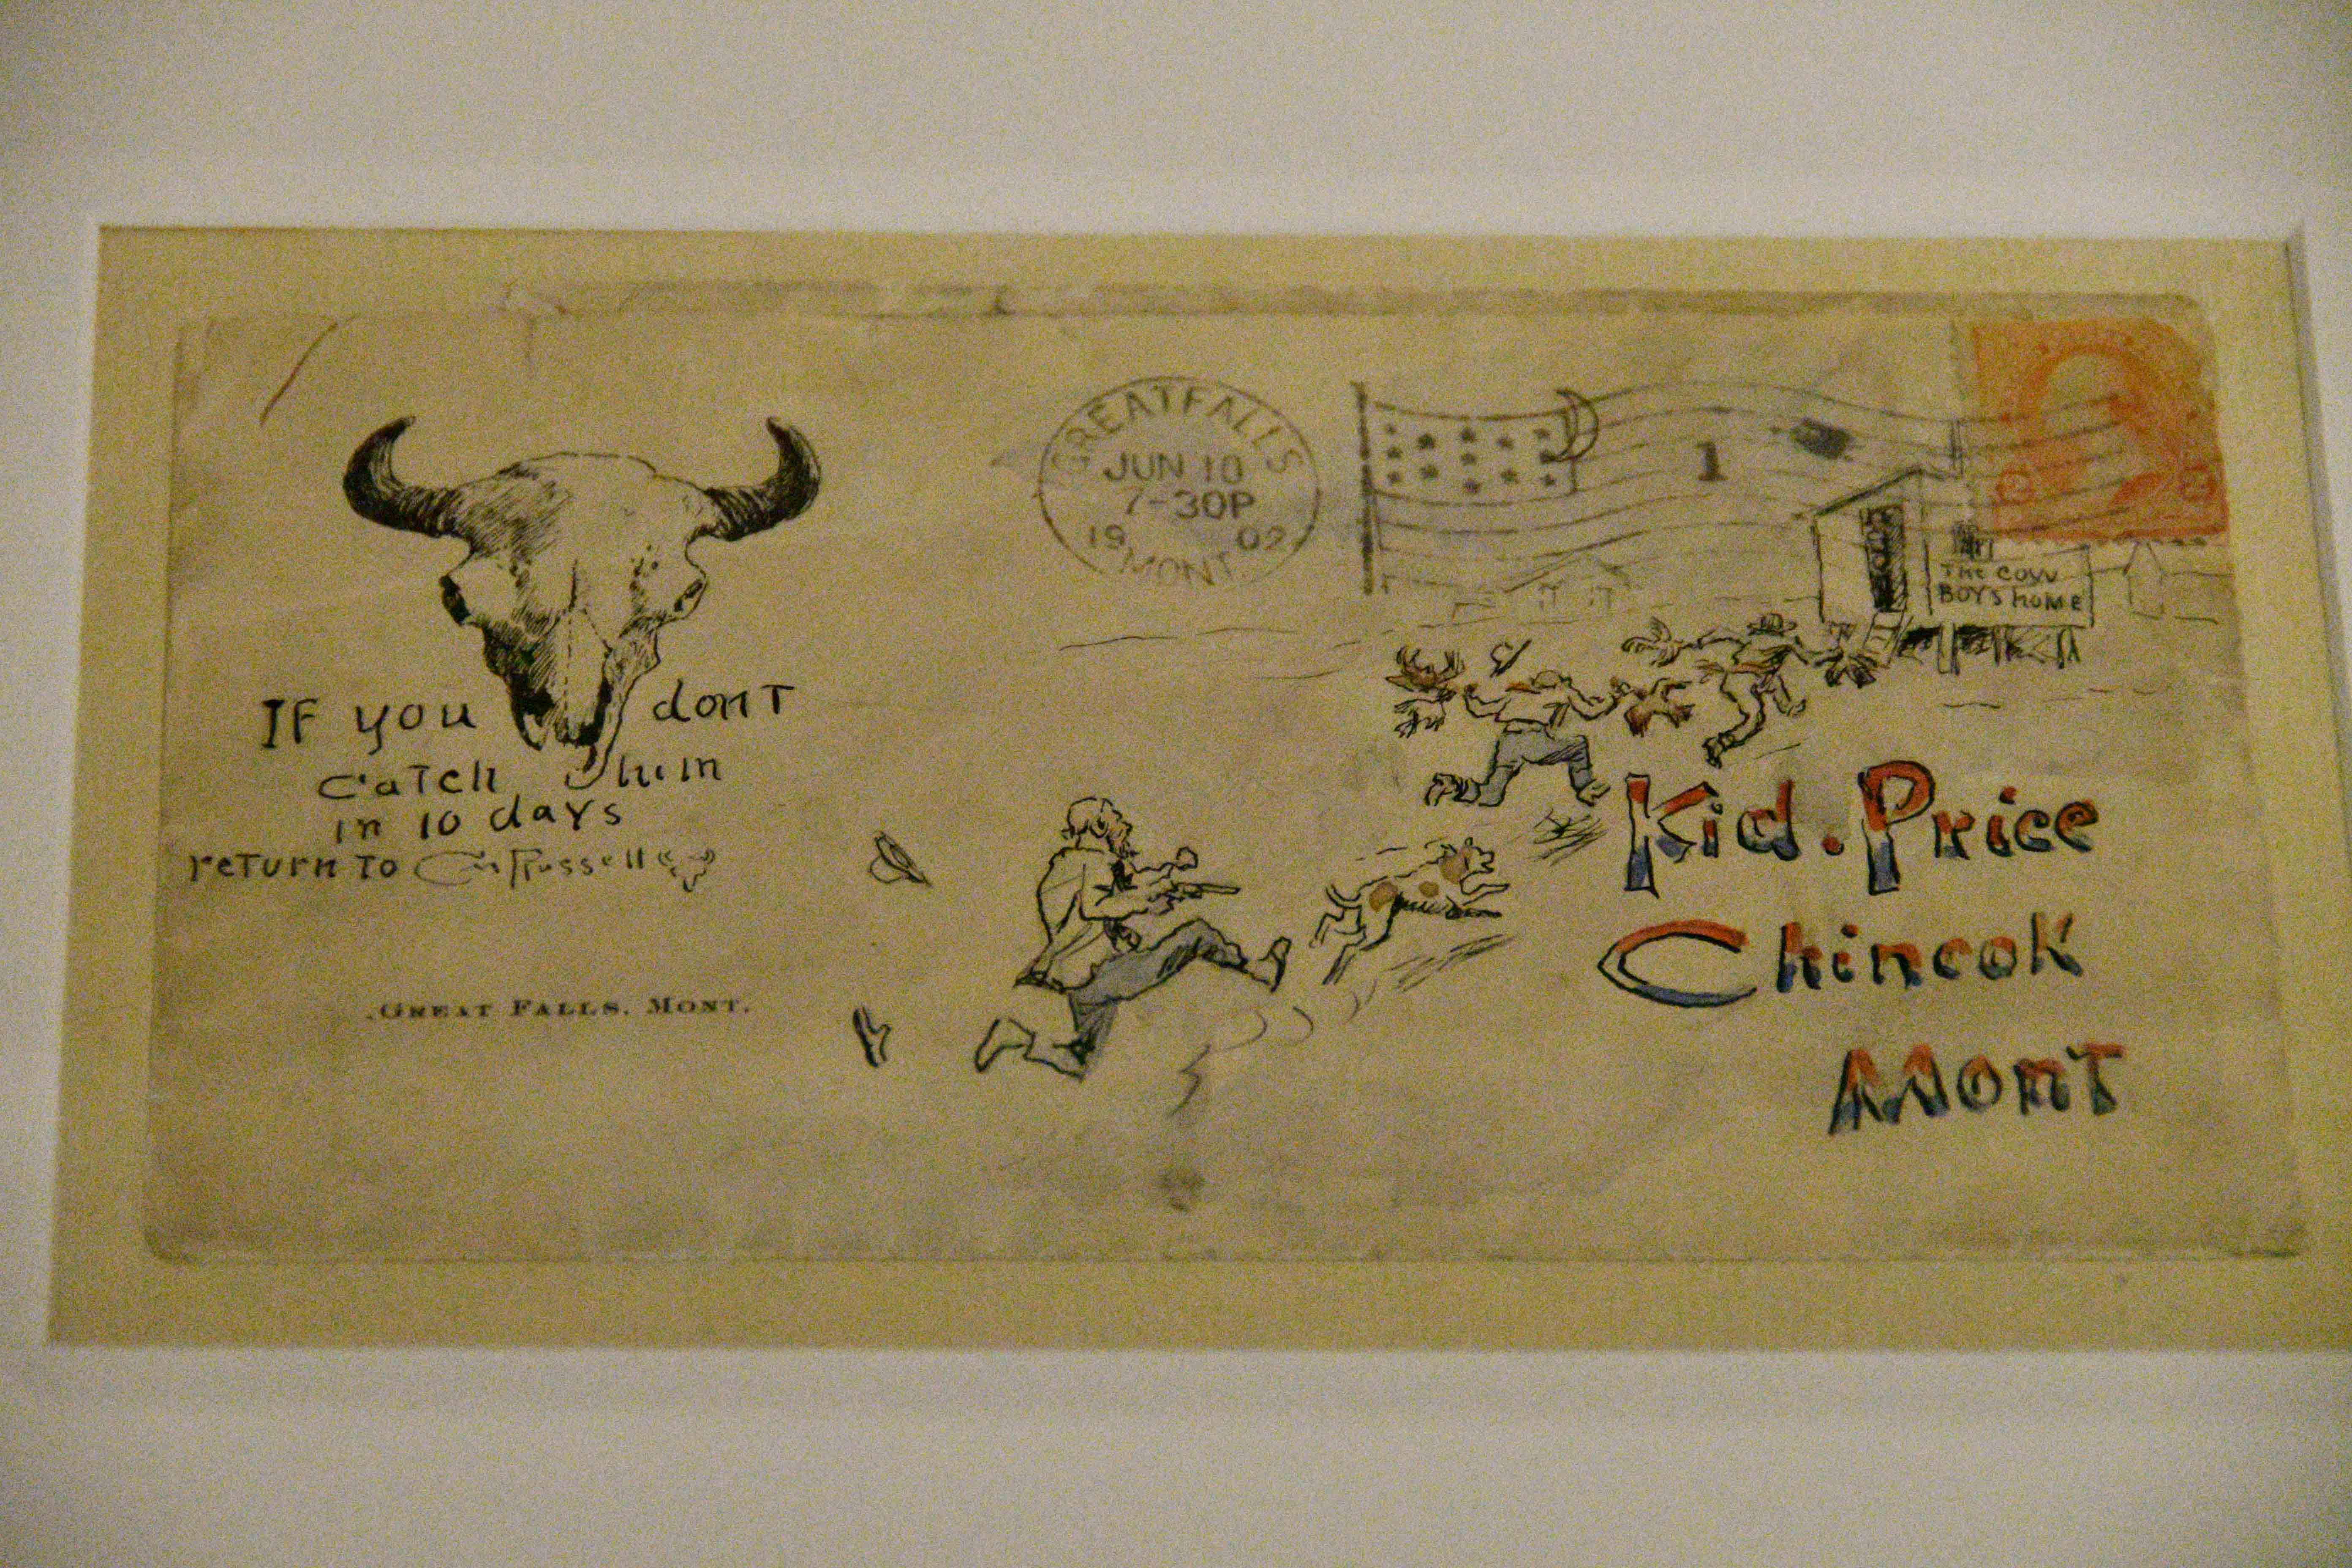 If you dont
catch him
in 10 days
return to CM Russell
GREAT FALLS, MONT.
GREAT FALLS
JUN 10
7-30P
19 02
MONT.
1
The cow
Boys home
Kid. Price
Chincok
Mont